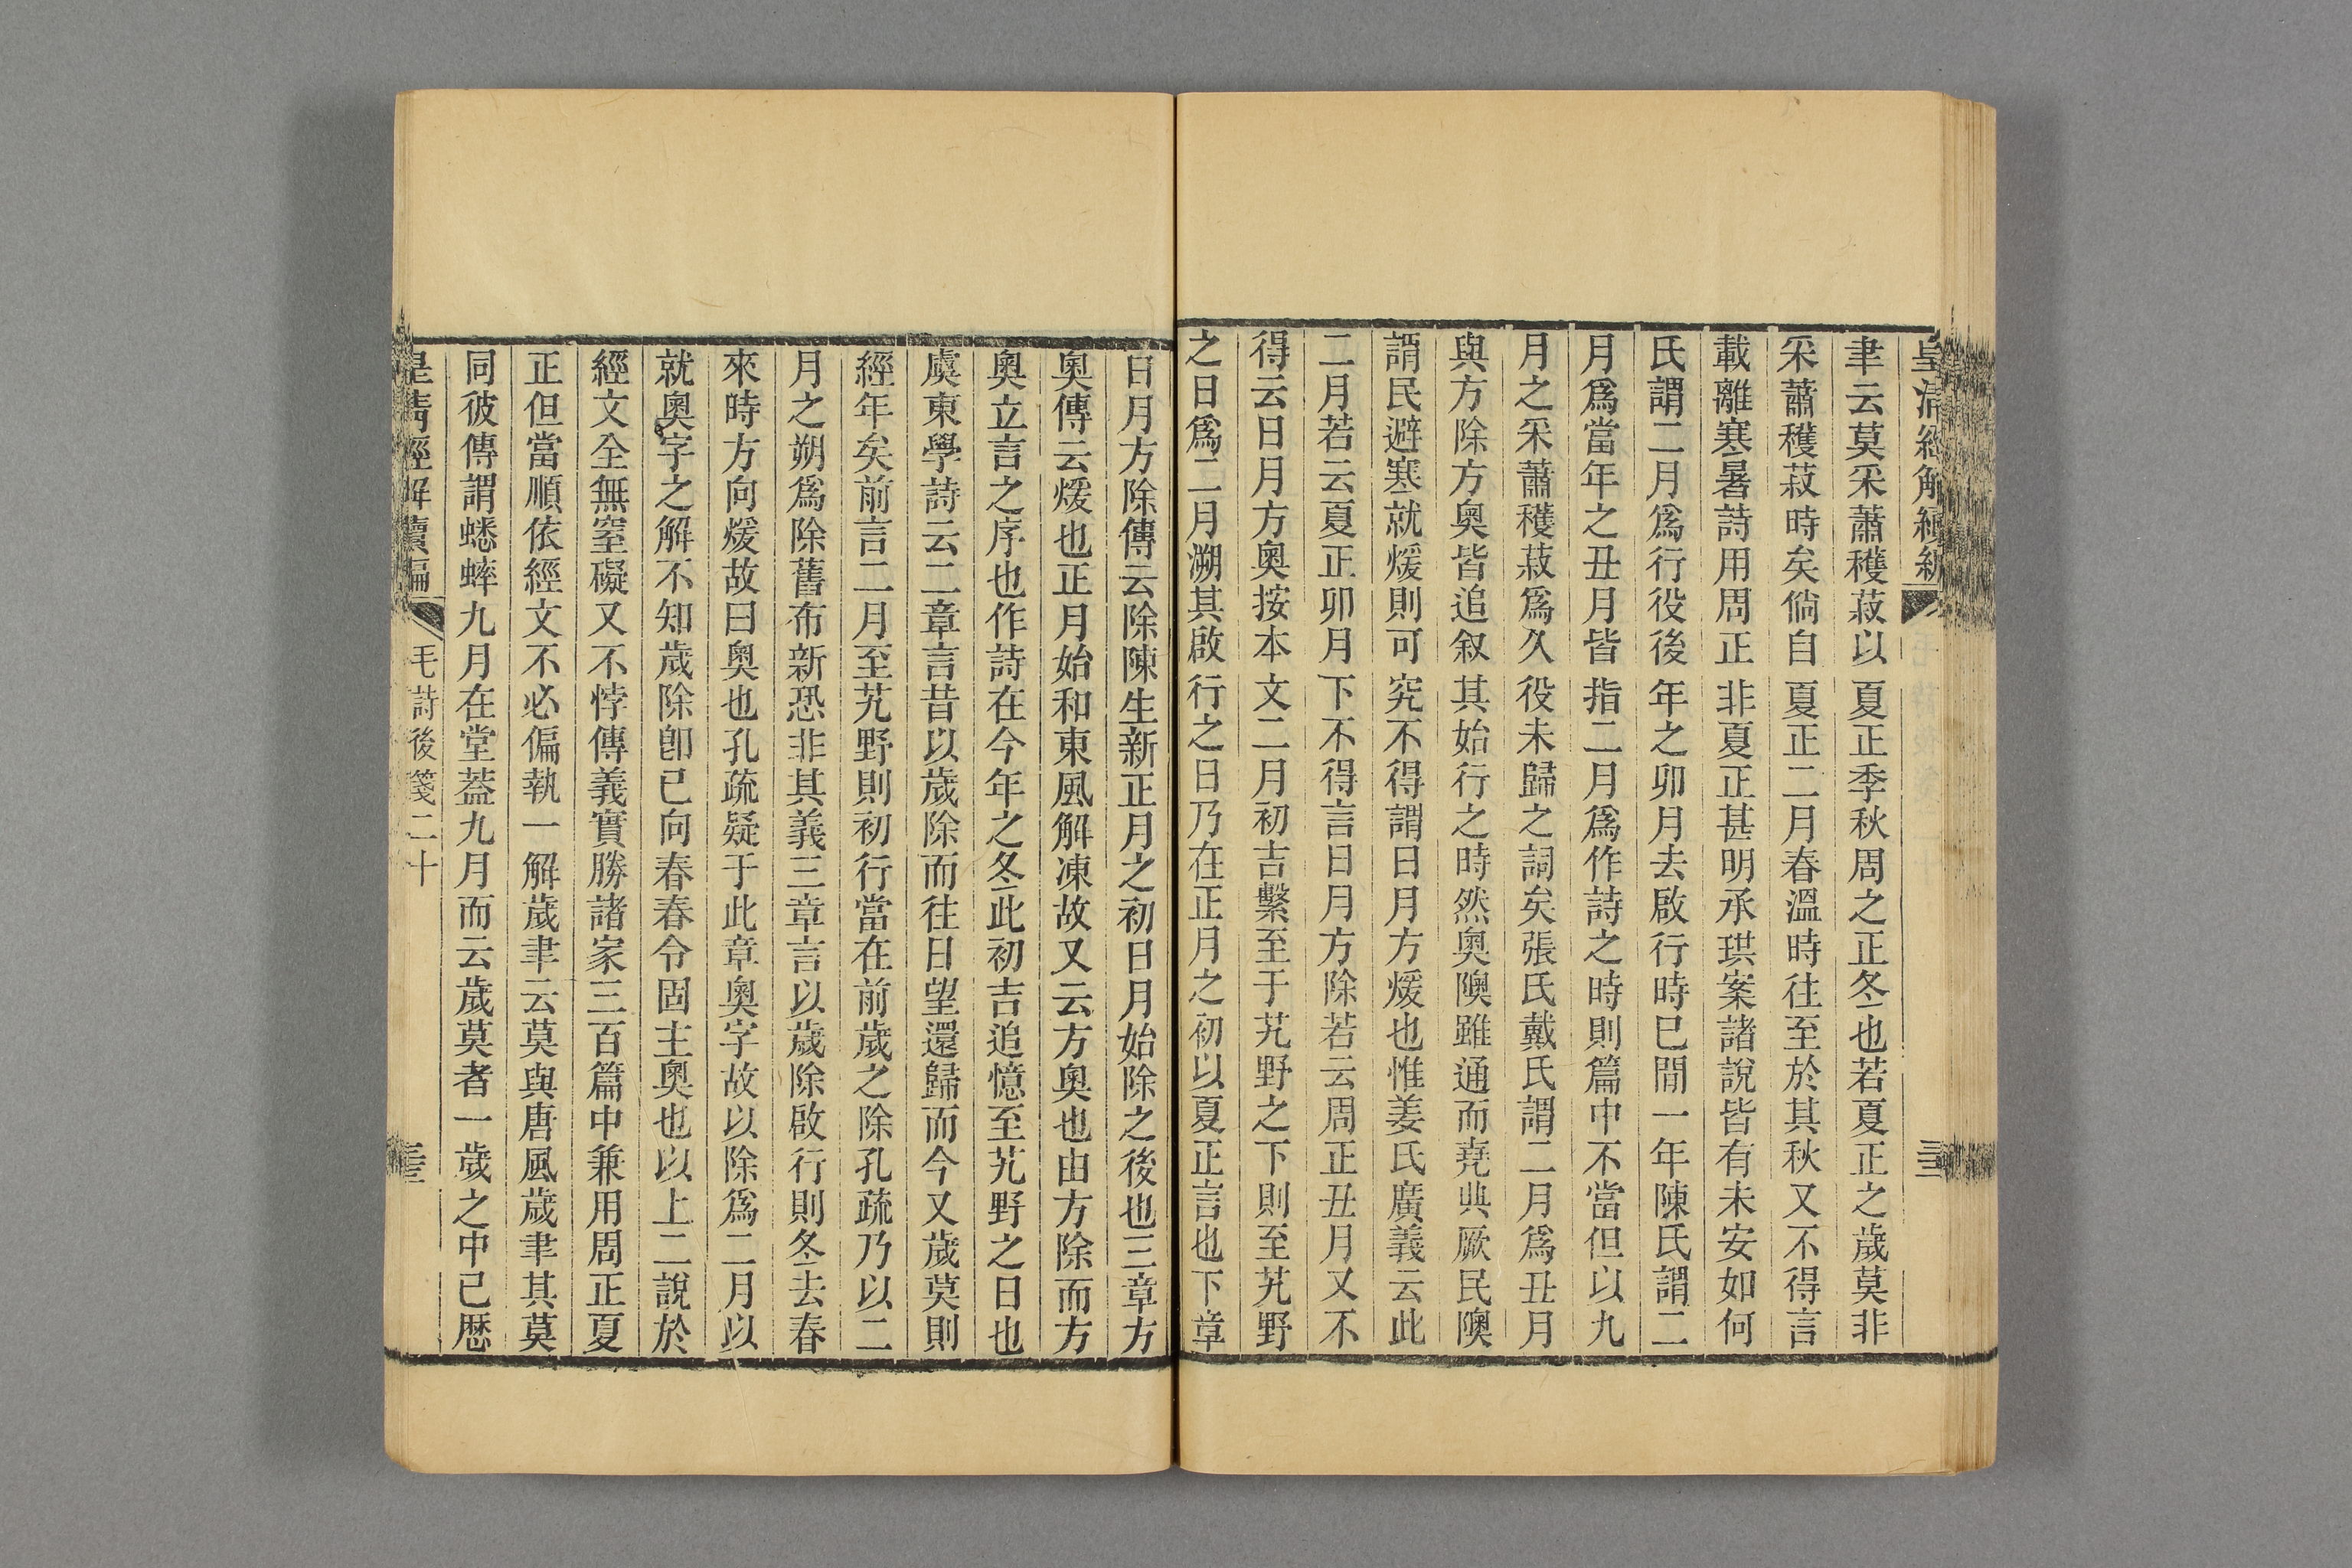 皇清經解續編
三
聿云莫采蕭穫菽以夏正季秋周之正冬也若夏正之歲莫非
采蕭穫菽時矣倘自夏正二月春溫時往至於其秋又不得言
載離寒暑詩用周正非夏正甚明承珙案諸說皆有未安如何
氏謂二月爲行役後年之卯月去啟行時已閒一年陳氏謂二
月爲當年之丑月皆指二月爲作詩之時則篇中不當但以九
月之采蕭穫菽爲久役未歸之詞矣張氏戴氏謂二月爲丑月
與方除方奧皆追叙其始行之時然奧隩雖通而堯典厥民隩
謂民避寒就煖則可究不得謂日月方煖也惟姜氏廣義云此
二月若云夏正卯月下不得言日月方除若云周正丑月又不
得云日月方奧按本文二月初吉繫至于艽野之下則至艽野
之日爲二月溯其啟行之日乃在正月之初以夏正言也下章
日月方除傳云除陳生新正月之初日月始除之後也三章方
奧傳云煖也正月始和東風解凍故又云方奧也由方除而方
奧立言之序也作詩在今年之冬此初吉追憶至艽野之日也
虞東學詩云二章言昔以歲除而往日望還歸而今又歲莫則
經年矣前言二月至艽野則初行當在前歲之除孔疏乃以二
月之朔爲除舊布新恐非其義三章言以歲除啟行則冬去春
來時方向煖故曰奧也孔疏疑于此章奧字故以除爲二月以
就奧字之解不知歲除卽已向春春令固主奧也以上二說於
經文全無窒礙又不悖傳義實勝諸家三百篇中兼用周正夏
正但當順依經文不必偏執一解歲聿云莫與唐風歲聿其莫
同彼傳謂蟋蟀九月在堂葢九月而云歲莫者一歲之中已歷
皇清經解續編
毛詩後箋二十